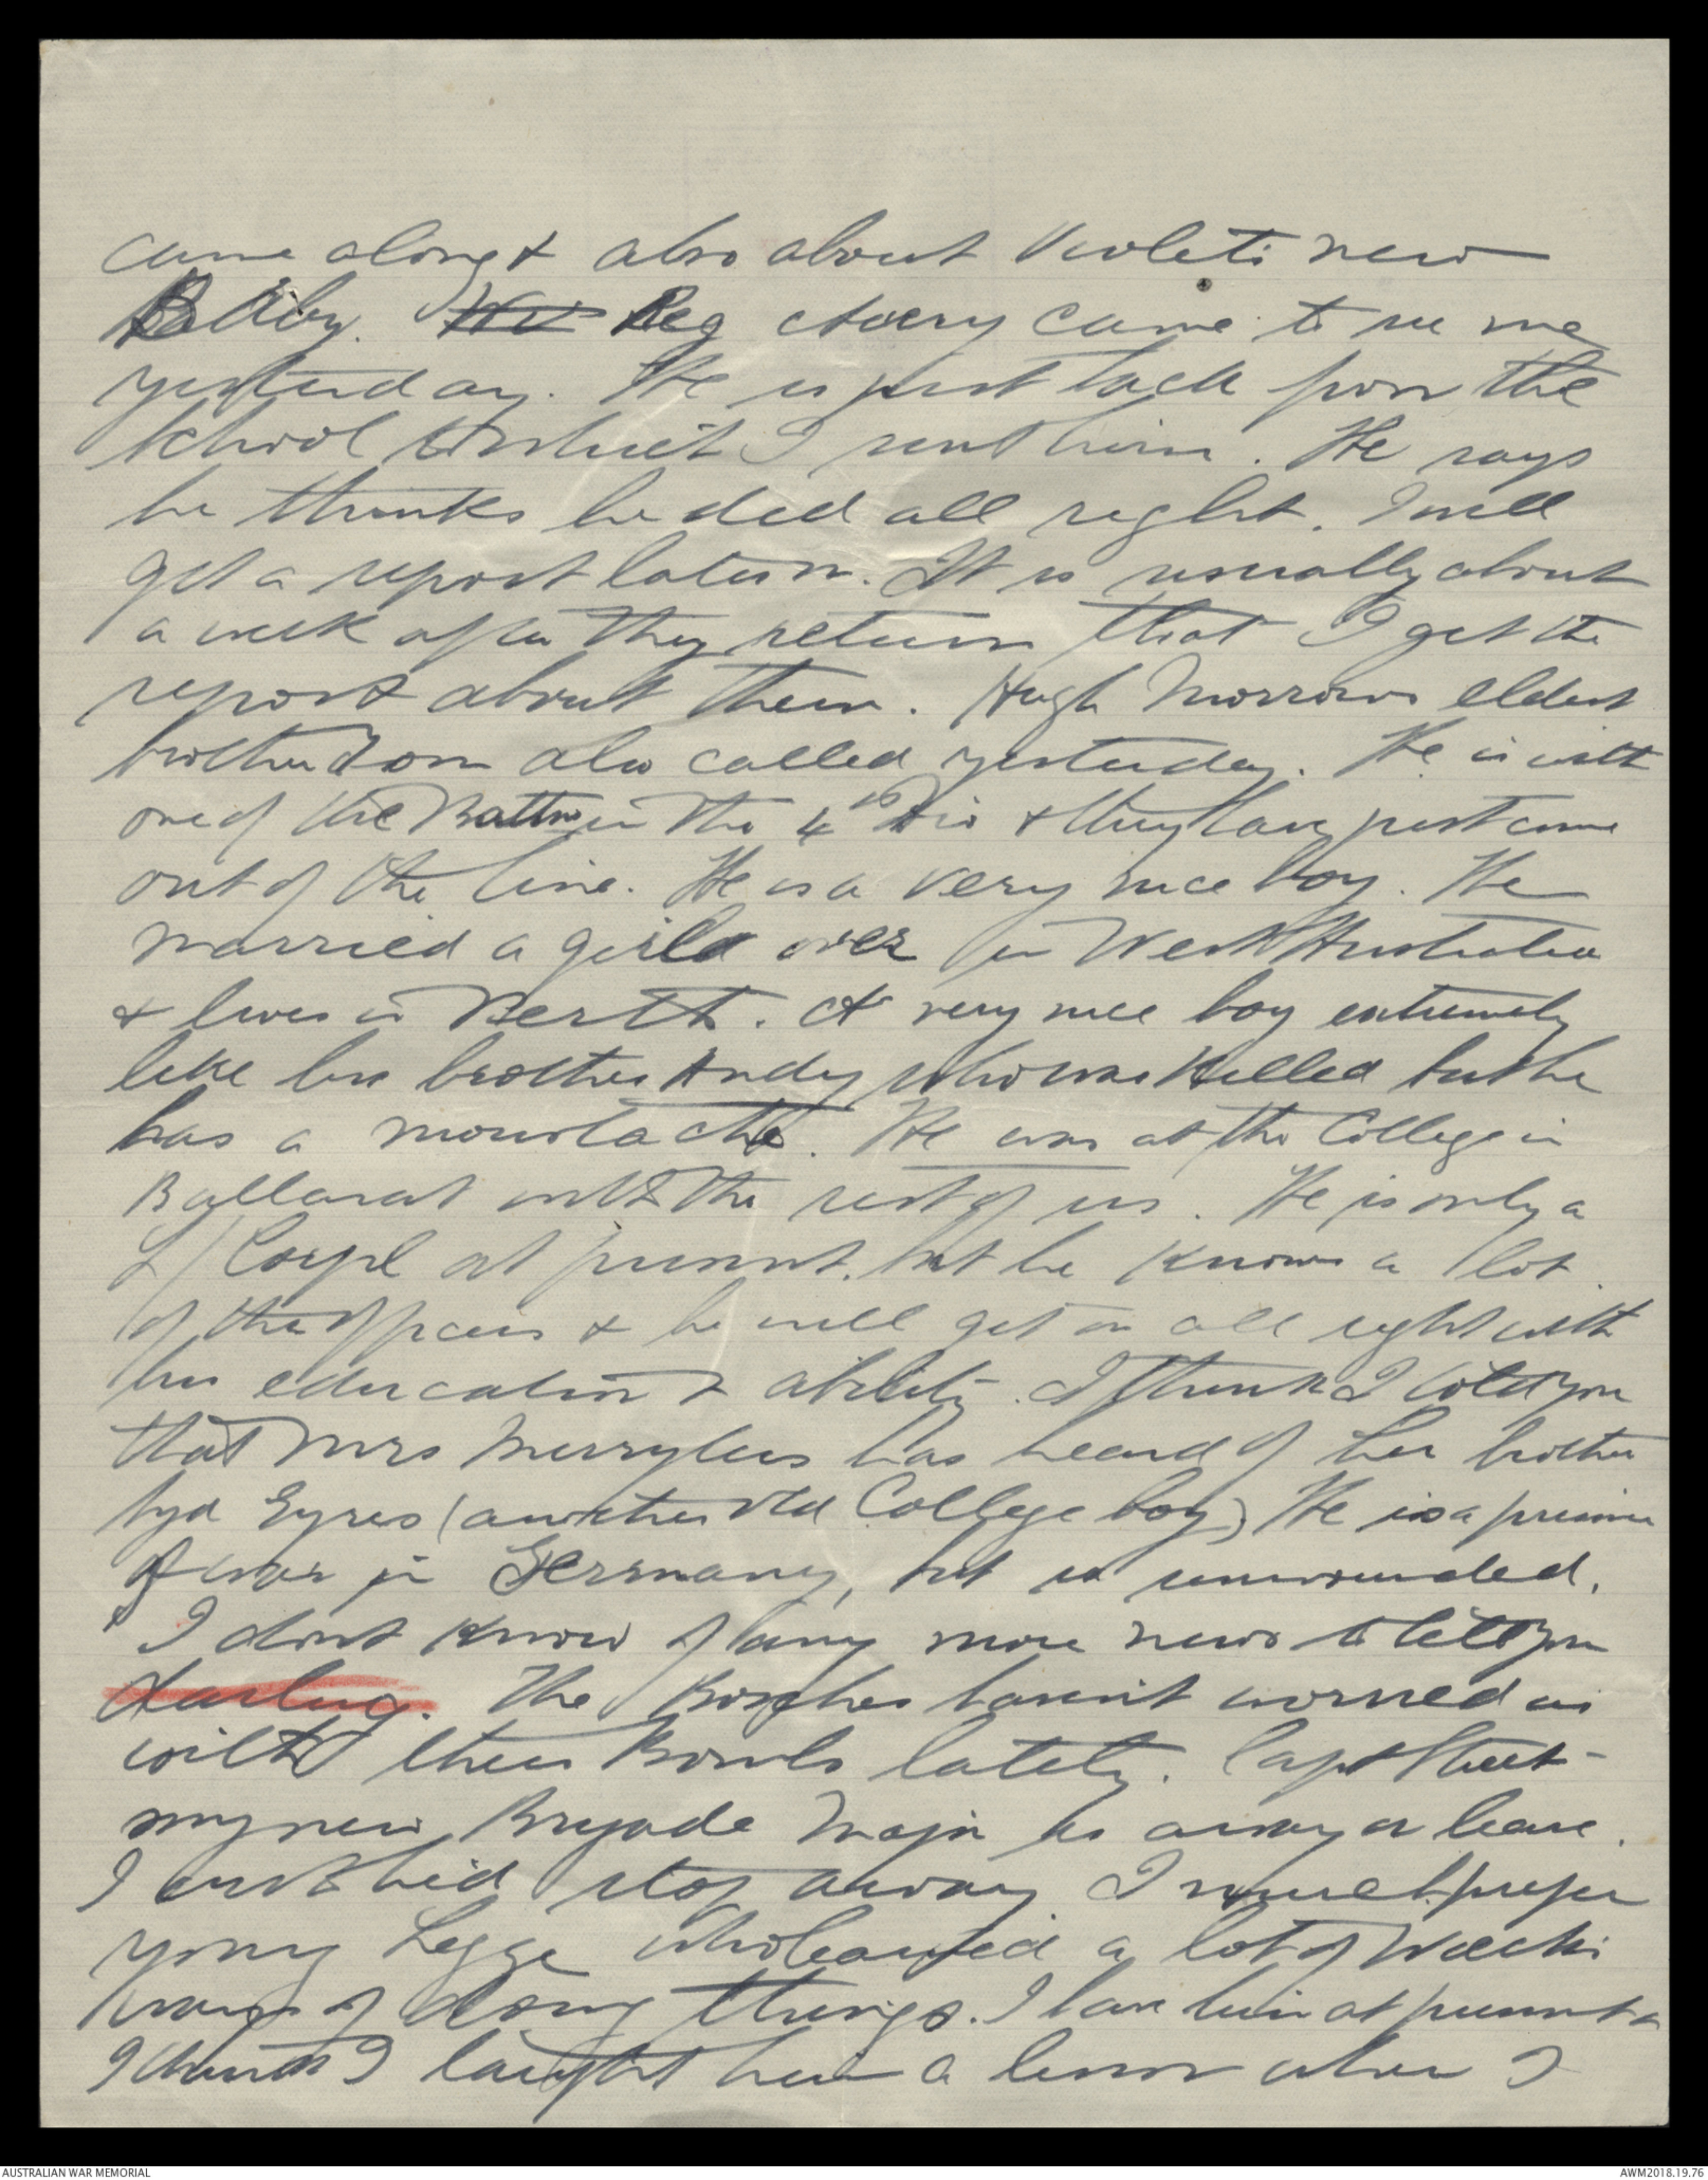 came along & also about Violets new
Baby. Reg Avery came to see me
yesterday. He is just back from the
School to which I sent him. He says
he thinks he did all right. I will
get a report later on. It is usually about
a week after they return that I get the
report about them. Hugh Morrows eldest
brother Tom also called yesterday. He is with
one of the Battns in the 4th Div & they have just come
out of the line. He is a very nice boy. He
married a girl over in West Australia
& lives in Perth. A very nice boy extremely
like his brother Andy who was killed but he
has a moustache. He was at the College in
Ballarat with the rest of us. He is only a
L/Corpl at present, but he knows a lot
of the officers & he will get on all right with
his education & ability. I think I told you
that Mrs Merrylees has heard of her brother
Syd Eyres (another old College boy) He is a prisoner
of war in Germany, but is unwounded.
I dont know of any more news to tell you
darling. The Bosches havent worried us
with their Bombs lately. Capt Street
my new Brigade Major is away on leave.
I wish hed stop away. I much prefer
young Legge who learned a lot of Wiecks
ways of doing things. I have him at present &
I think I taught him a lesson when I
AUSTRALIAN WAR MEMORIAL
AWM2018.19.76